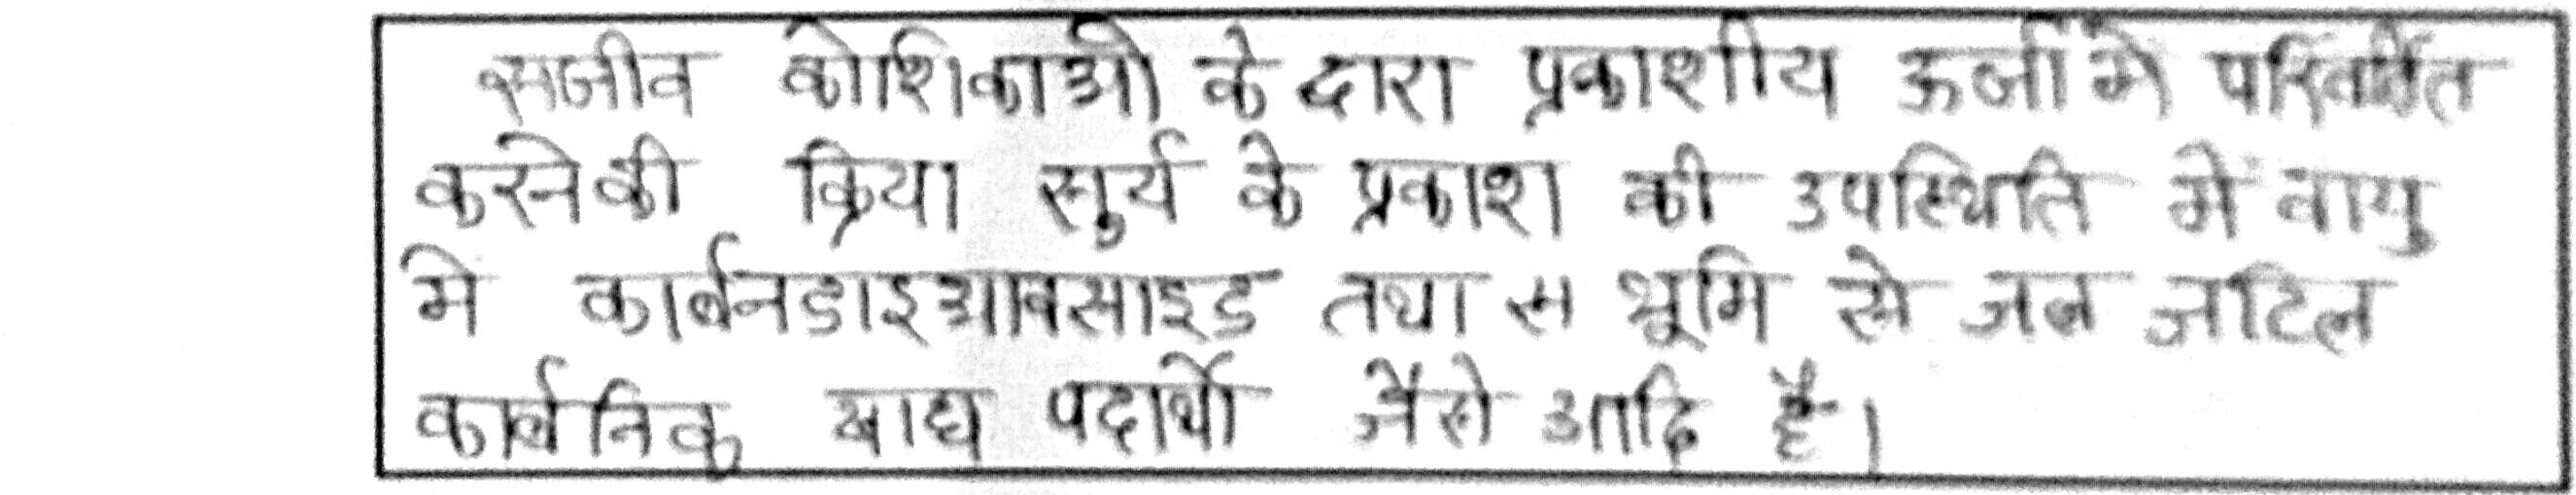 सजीव कोशिकाओ के द्वारा प्रकाशीय ऊर्जा मे परिवर्तित
करनेकी क्रिया सुर्य के प्रकाश की उपस्थिति में वायु
मे कार्बनडाइआक्साइड तथा स भूमि से जल जटिल
कार्बनिक खाद्य पदार्थो जैसे आदि है।